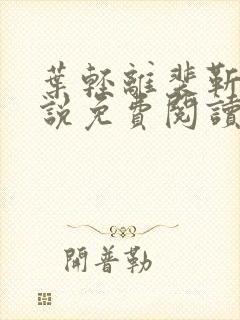 葉輕離裴靳
說免費閱讀
開普勒